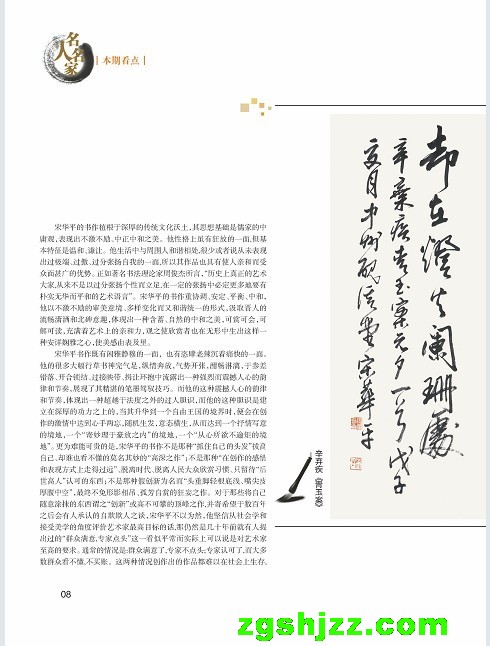 名人名家
本期看点
宋华平的书作植根于深厚的传统文化沃土，其思想基础是儒家的中
庸观，表现出不激不励、中正中和之美。他性格上虽有狂放的一面，但基
本特征是温和、谦让。他生活中与周围人和谐相处，很少或者说从未表现
出过极端、过傲、过分张扬自我的一面，所以其作品也具有使人亲和而受
众面甚广的优势。正如著名书法理论家周俊杰所言，“历史上真正的艺术
大家，从来不是以过分张扬个性而立足，在一定的张扬中必定更多地要有
朴实无华而平和的艺术语言”。宋华平的书作重协调、安定、平衡、中和，
他以不激不励的审美意境、多样变化而又和谐统一的形式，汲取晋人的
流畅潇洒和北碑意趣，体现出一种含蓄、自然的中和之美，可赏可会，可
解可读，充满着艺术上的亲和力，观之使欣赏者也在无形中生出这样一
种安详娴雅之心，使美感由表及里。
宋华平书作既有闲雅静穆的一面，也有恣肆老辣沉着痛快的一面。
他的很多大幅行草书神完气足，纵情奔放，气势开张，酣畅淋漓，于参差
错落、开合顿结、过接映带、捐让环抱中流露出一种强烈而震撼人心的韵
律和节奏，展现了其精湛的笔墨驾驭技巧。而他的这种震撼人心的韵律
和节奏，体现出一种超越于法度之外的过人胆识，而他的这种胆识是建
立在深厚的功力之上的，当其升华到一个自由王国的境界时，便会在创作
的激情中达到心手两忘，随机生发，意态横生，从而达到一个抒情写意
的境地，一个“寄妙理于豪放之内”的境地，一个“从心所欲不逾矩的境
地”。更为难能可贵的是，宋华平的书作不是那种“抓住自己的头发”拔高
自己、却谁也看不懂的莫名其妙的“高深之作”；不是那种“在创作的感悟
和表现方式上走得过远”、脱离时代、脱离人民大众欣赏习惯、只留待“后
世高人”认可的东西；不是那种假创新为名而“头重脚轻根底浅、嘴尖皮
厚腹中空”，最终不免形影相吊、孤芳自赏的狂妄之作。对于那些将自己
随意涂抹的东西谓之“创新”或高不可攀的顶峰之作，并寄希望于数百年
之后会有人承认的自欺欺人之谈，宋华平不以为然，他坚信从社会学和
接受美学的角度评价艺术家最高目标的话，那仍然是几十年前就有人提
出过的“群众满意，专家点头”这一看似平常而实际上可以说是对艺术家
至高的要求。通常的情况是：群众满意了，专家不点头；专家认可了，而大多
数群众看不懂，不买账。这两种情况创作出的作品都难以在社会上生存，
却在灯火阑珊处
辛弃疾青玉案元夕一首戊子
夏月中州耐退堂宋华平
辛弃疾《青玉案》
08
zgshjzz.com